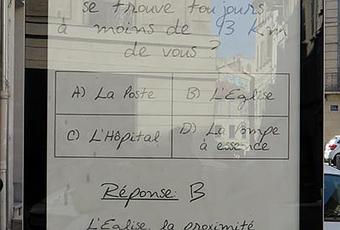 se trouve toujours
à moins de 93 km
de vous ?
A) La Poste
B) L'Eglise
C) L'Hôpital
D) La Pompe
à essence
Réponse: B
L'Eglise, la proximité